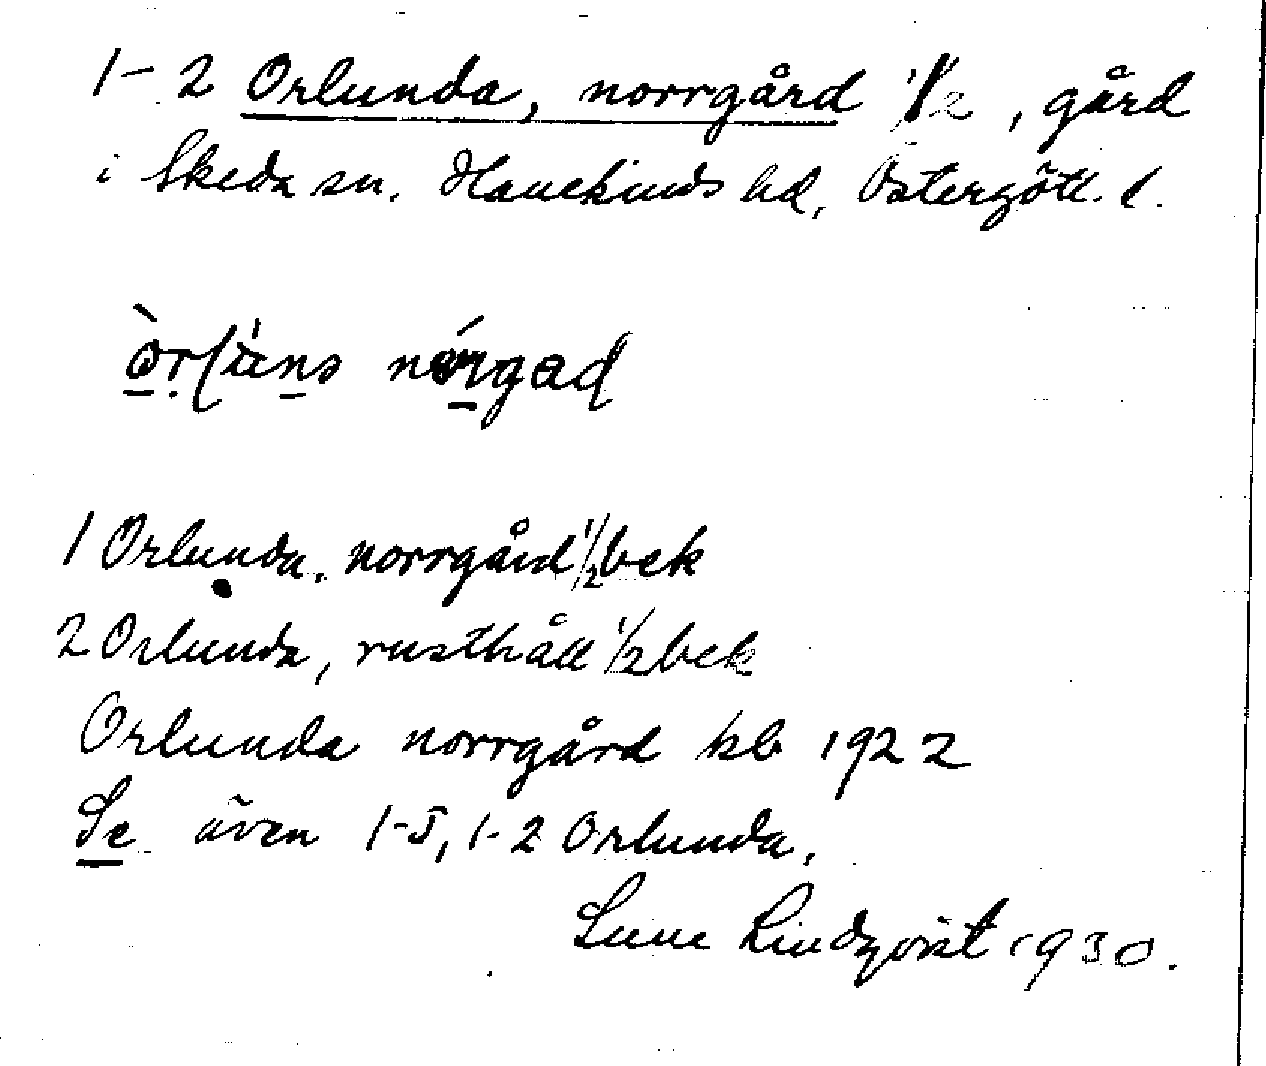 1-2 Orlunda, norrgård 1/2, gård
i Skeda sn. Hanekinds hd, Östergötl. l.
1 Orlunda, norrgård 1/2 bek
2 Orlunda, rusthåll 1/2 bek
Orlunda norrgård kb 1922
Se även 1-5, 1-2 Orlunda.
Sune Lindqvist 1930.